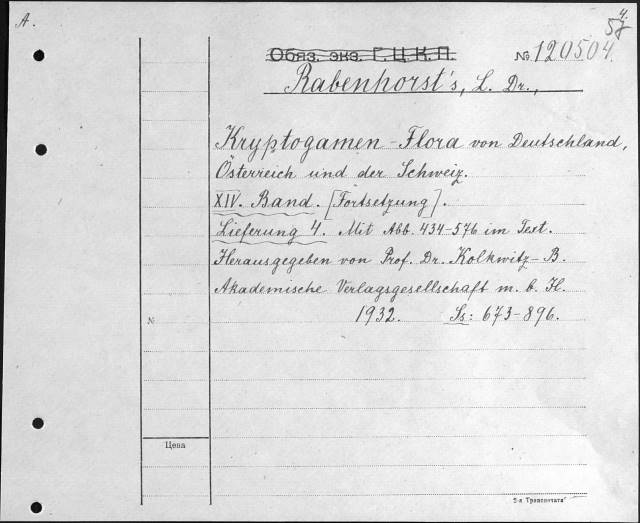 A.
4.
58
Обяз. экз. Г.Ц.К.П.
№ 120504.
Rabenhorst's, L. Dr.,
Kryptogamen-Flora von Deutschland,
Österreich und der Schweiz.
XIV. Band. [Fortsetzung].
Lieferung 4. Mit Abb. 434-576 im Text.
Herausgegeben von Prof. Dr. Kolkwitz-B.
Akademische Verlagsgesellschaft m. b. H.
1932. Ss: 673-896.
№
Цена
2-я Транспечати